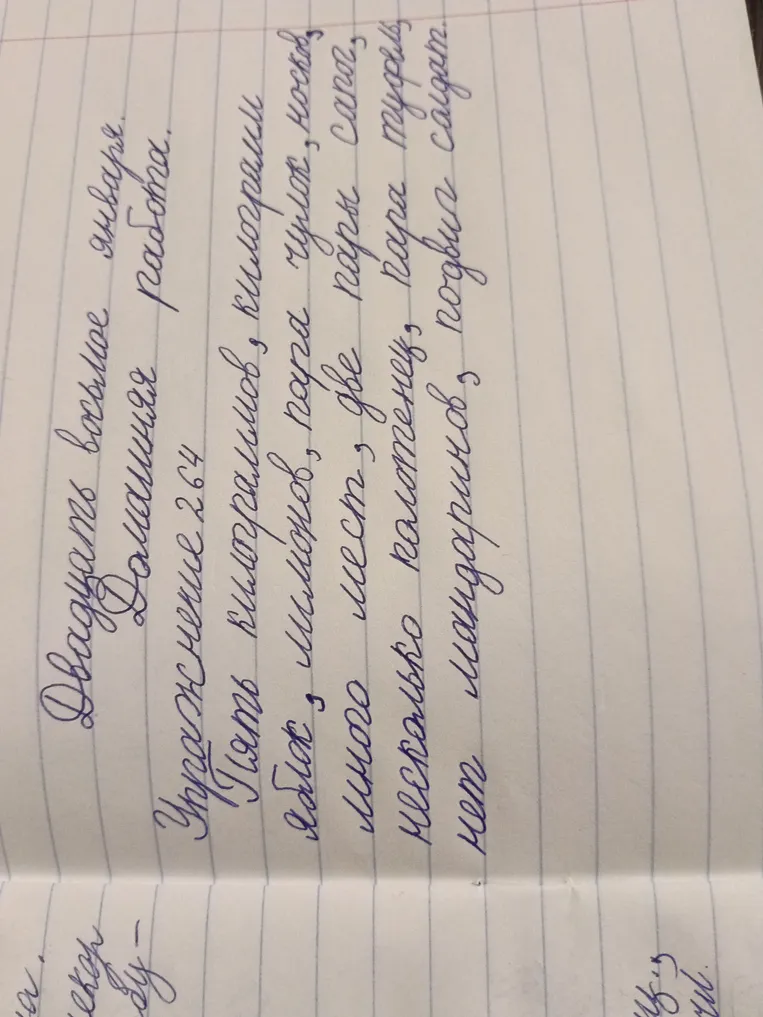 Двадцать восьмое января.
Домашняя работа.
Упражнение 264
Пять килограммов, килограмм
яблок, лимонов, пара чулок, носков,
много мест, две пары сапог,
несколько полотенец, пара туфель,
нет мандаринов, подвиг солдат.